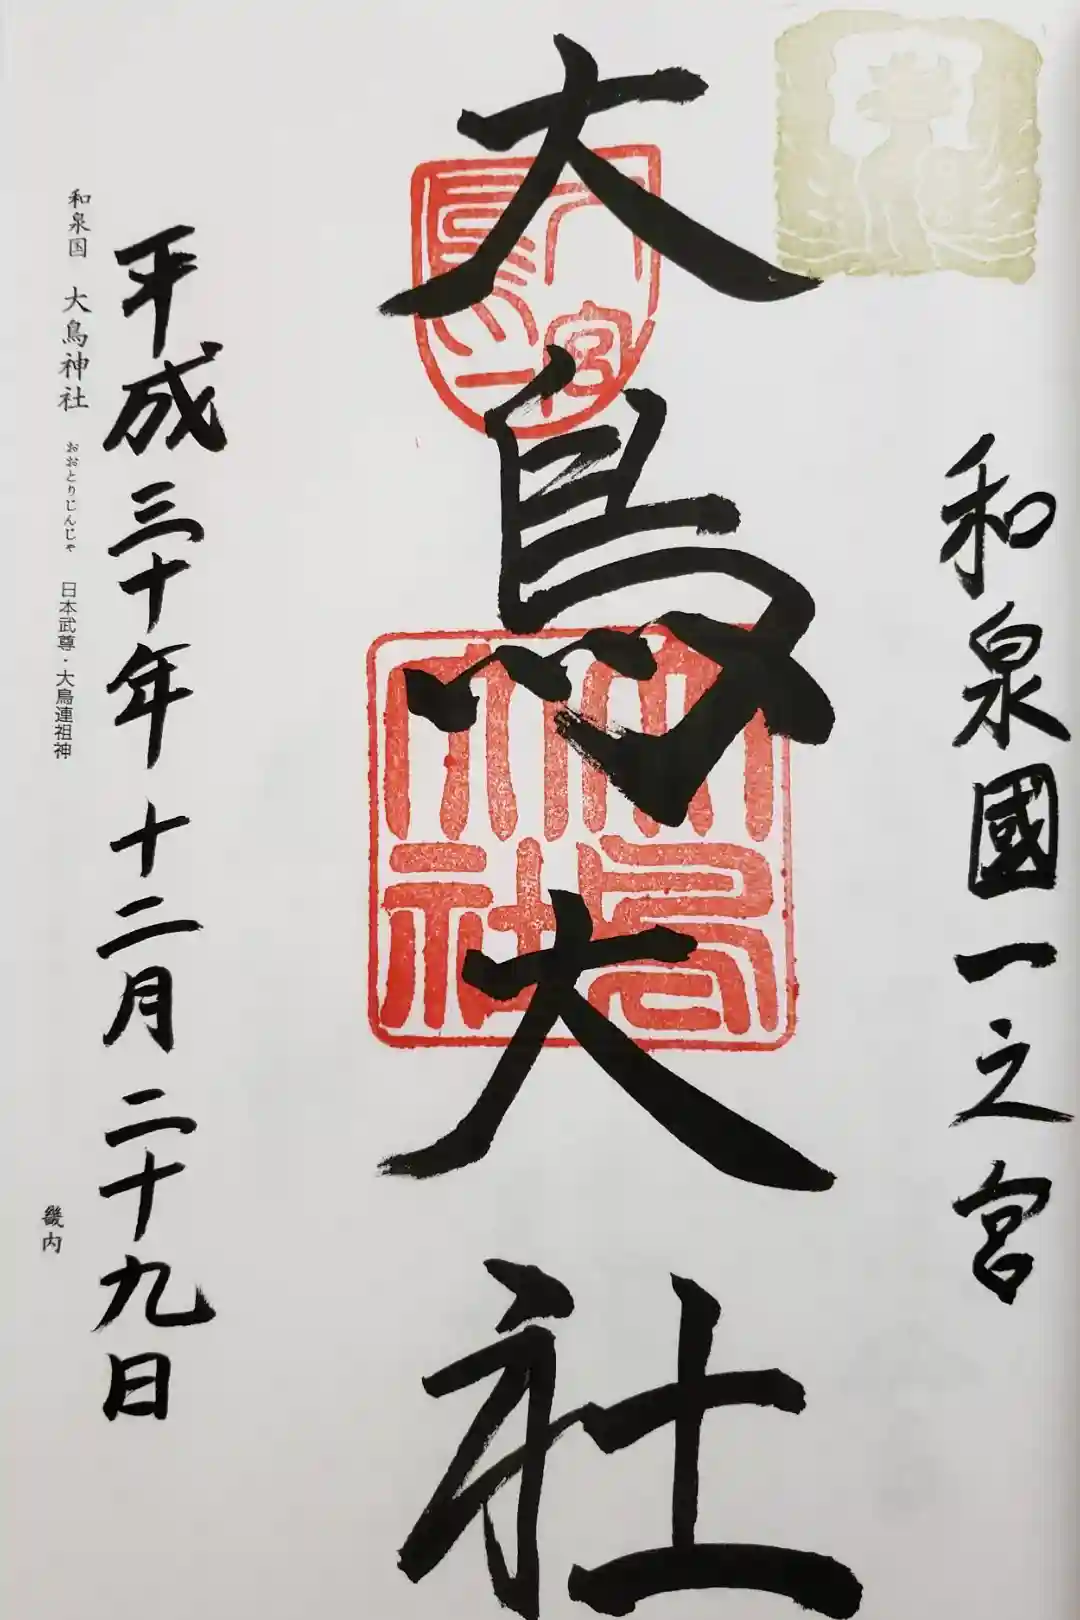 和泉國一之宮
大鳥大社
平成三十年十二月二十九日
和泉国 大鳥神社 おおとりじんじゃ 日本武尊・大鳥連祖神
畿内